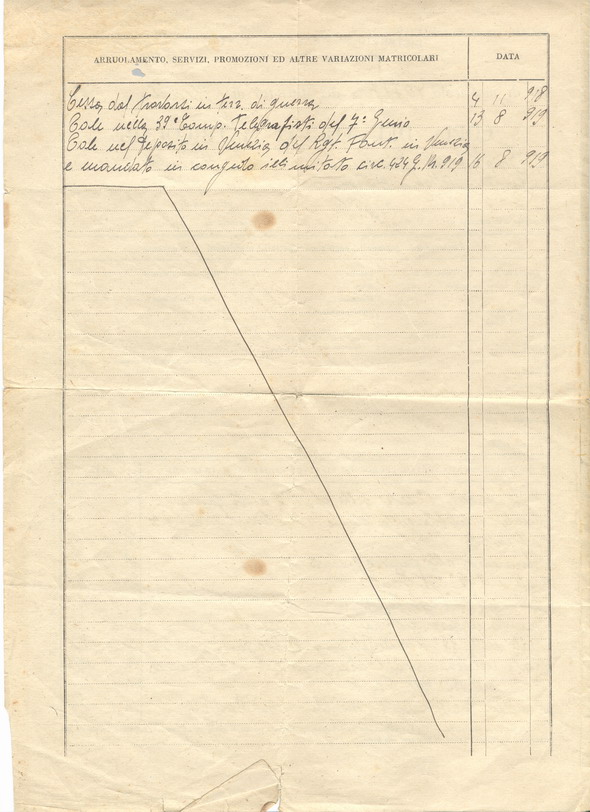 ARRUOLAMENTO, SERVIZI, PROMOZIONI ED ALTRE VARIAZIONI MATRICOLARI DATA
Cessa dal trovarsi in terr. di guerra 4 11 918
Tale nella 39ª Comp. Telegrafisti del 7º Genio 13 8 919
Tale nel Deposito in Venezia del Rgt. Fant. in Venezia
e mandato in congedo illimitato circ. 424 G. M. 919 16 8 919